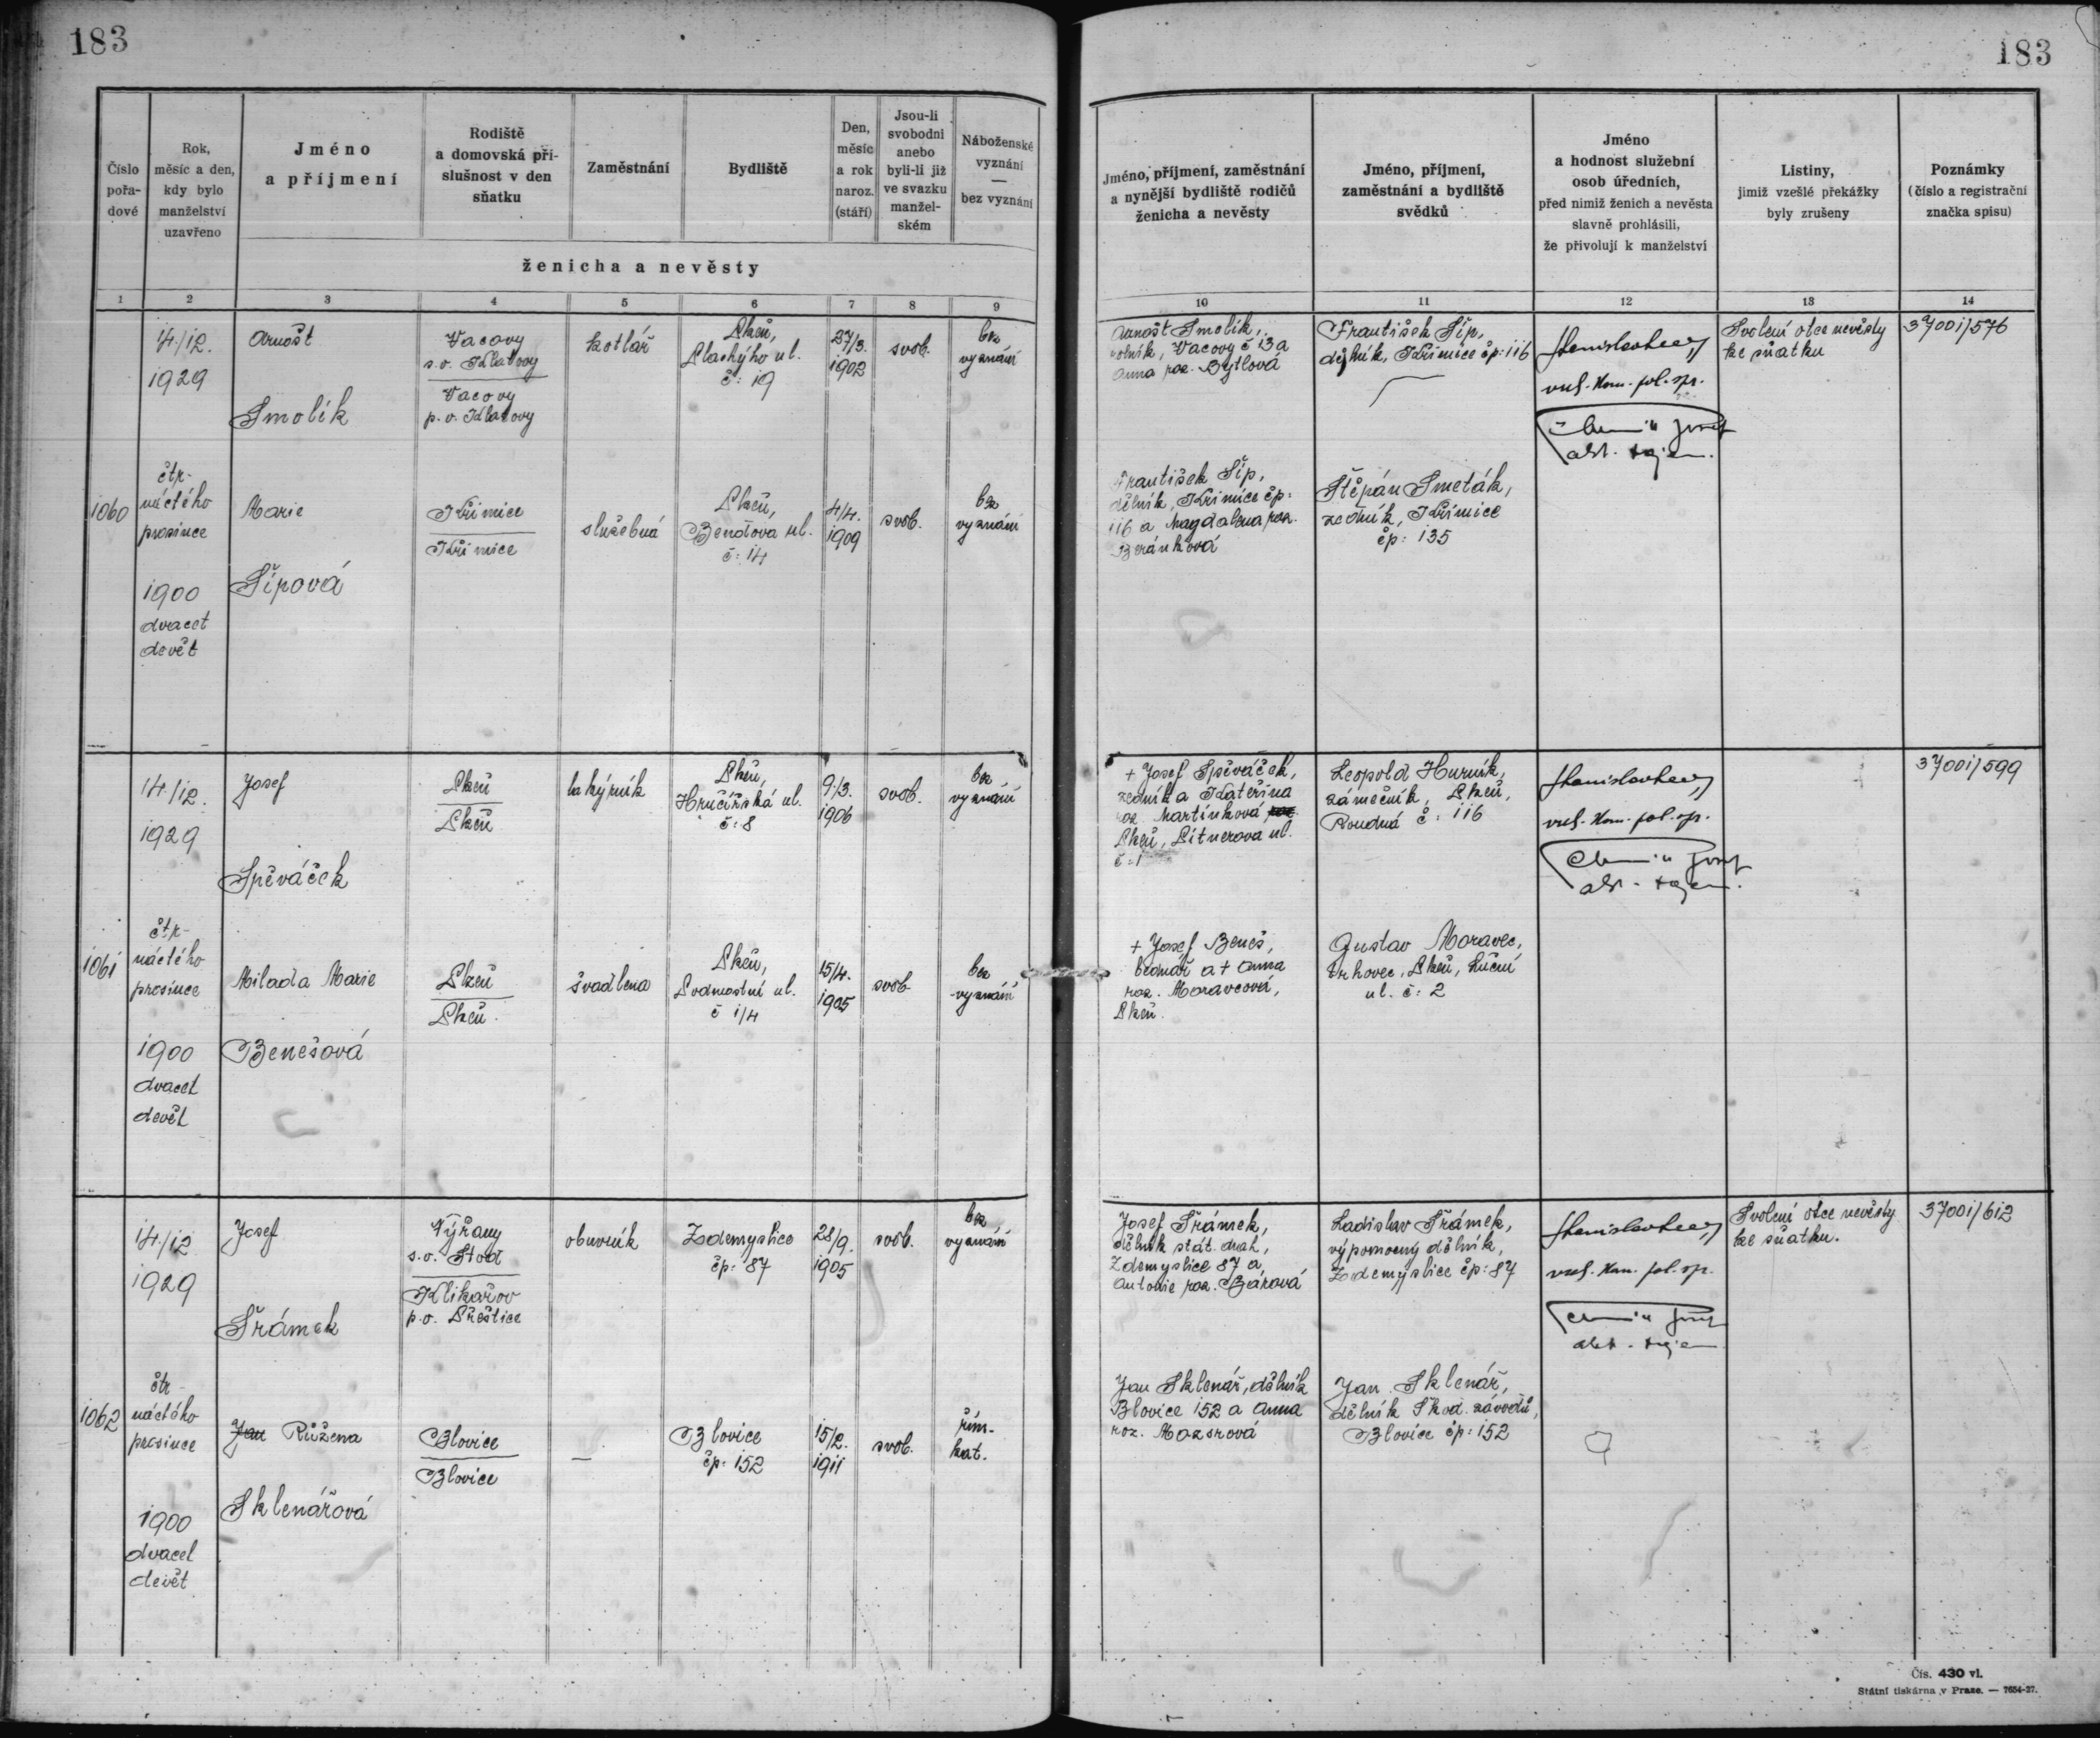 183
183
Číslo
pořa-
dové
Rok,
měsíc a den,
kdy bylo
manželství
uzavřeno
Jméno
a příjmení
Rodiště
a domovská pří-
slušnost v den
sňatku
Zaměstnání
Bydliště
Den,
měsíc
a rok
naroz.
(stáří)
Jsou-li
svobodni
anebo
byli-li již
ve svazku
manžel-
ském
Náboženské
vyznání
—
bez vyznání
ženicha a nevěsty
Jméno, příjmení, zaměstnání
a nynější bydliště rodičů
ženicha a nevěsty
Jméno, příjmení,
zaměstnání a bydliště
svědků
Jméno
a hodnost služební
osob úředních,
před nimiž ženich a nevěsta
slavně prohlásili,
že přivolují k manželství
Listiny,
jimiž vzešlé překážky
byly zrušeny
Poznámky
(číslo a registrační
značka spisu)
1 2 3 4 5 6 7 8 9
10 11 12 13 14
1060
14/12.
1929
čtr-
náctého
prosince
1900
dvacet
devět
Arnošt
Smolík
Vacovy
s.o. Klatovy
Vacovy
p.o. Klatovy
kotlář
Plzeň,
Plachýho ul.
č: 19
27/3.
1902
svob.
bez
vyznání
Arnošt Smolík,
rolník, Vacovy č 13 a
Anna roz. Bytlová
František Šíp,
dělník, Křimice čp: 116
Svolení otce nevěsty
ke sňatku
37001/576
Marie
Šípová
Křimice
Křimice
služebná
Plzeň,
Bendova ul.
č: 14
4/4.
1909
svob.
bez
vyznání
František Šíp,
dělník, Křimice čp:
116 a Magdalena roz.
Beránková
Štěpán Smeták,
zedník, Křimice
čp: 135
1061
14/12.
1929
čtr-
náctého
prosince
1900
dvacet
devět
Josef
Spěváček
Plzeň
Plzeň
lakýrník
Plzeň,
Hručířská ul.
č: 8
9/3.
1906
svob.
bez
vyznání
+ Josef Spěváček,
zedník a Kateřina
roz. Martínková
Plzeň, Litnerova ul.
č: 1
Leopold Hurník,
zámečník, Plzeň,
Roudná č: 116
37001/599
Milada Marie
Benešová
Plzeň
Plzeň.
švadlena
Plzeň,
Podmostní ul.
č 1/4
15/4.
1905
svob.
bez
vyznání
+ Josef Beneš,
bednář a + Anna
roz. Moravcová,
Plzeň.
Gustav Moravec,
trhovec, Plzeň, Luční
ul. č: 2
1062
14/12
1929
čtr-
náctého
prosince
1900
dvacet
devět
Josef
Šrámek
Týřany
s.o. Stod
Klikařov
p.o. Přeštice
obuvník
Zdemyslice
čp: 87
28/9.
1905
svob.
bez
vyznání
Josef Šrámek,
dělník stát. drah,
Zdemyslice 87 a
Antonie roz. Bárová
Ladislav Šrámek,
výpomocný dělník,
Zdemyslice čp: 87
Svolení otce nevěsty
ke sňatku.
37001/612
Jan Růžena
Sklenářová
Blovice
Blovice
—
Blovice
čp: 152
15/2.
1911
svob.
řím.-
kat.
Jan Sklenář, dělník
Blovice 152 a Anna
roz. Mazsrová
Jan Sklenář,
dělník Škod. závodů,
Blovice čp: 152
Čís. 430 vl.
Státní tiskárna v Praze. — 7654-27.